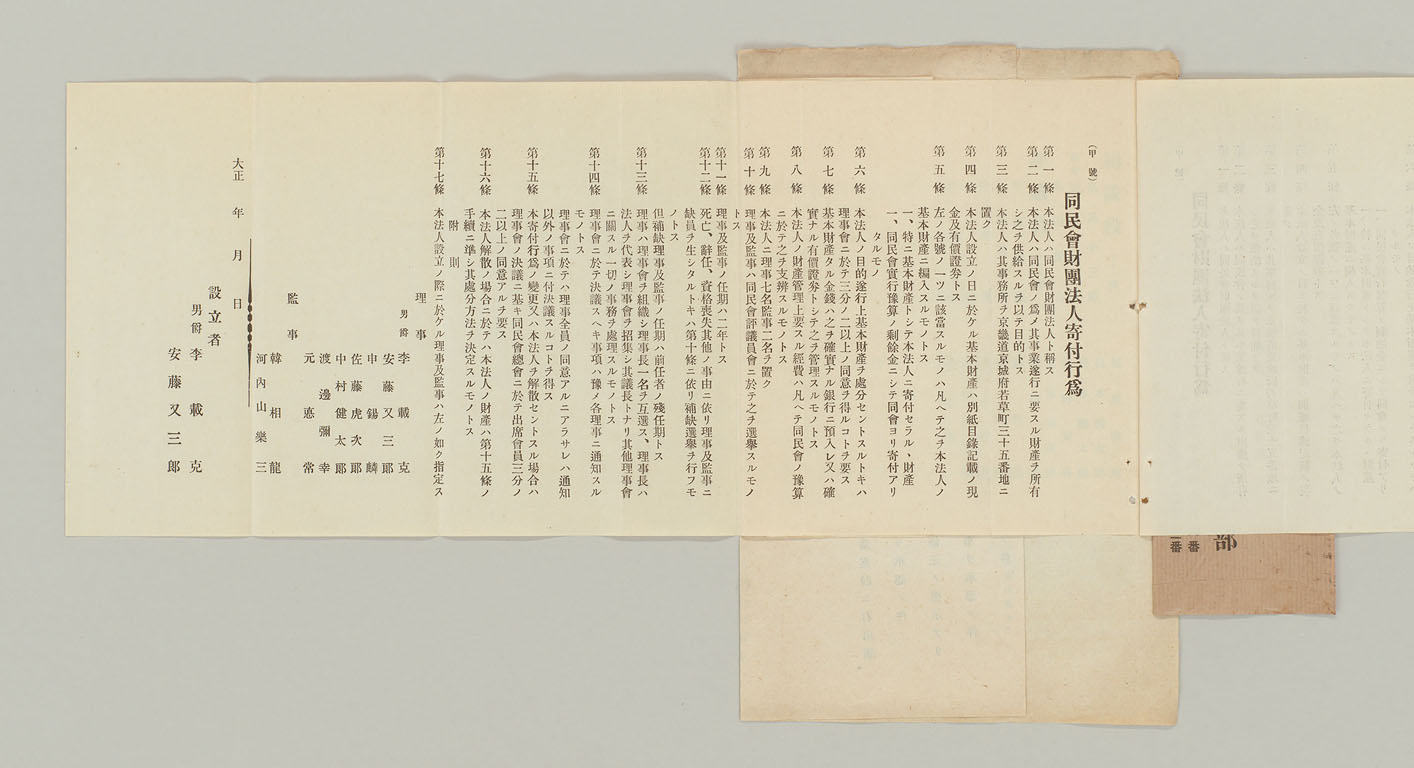 (甲號)
同民會財團法人寄付行爲
第一條 本法人ハ同民會財團法人ト稱ス
第二條 本法人ハ同民會ノ爲メ其事業遂行ニ要スル財產ヲ所有
シ之ヲ供給スルヲ以テ目的トス
第三條 本法人ハ其事務所ヲ京畿道京城府若草町三十五番地ニ
置ク
第四條 本法人設立ノ日ニ於ケル基本財產ハ別紙目錄記載ノ現
金及有價證券トス
左ノ各號ノ一ツニ該當スルモノハ凡ヘテ之ヲ本法人ノ
第五條 基本財產ニ編入スルモノトス
一、特ニ基本財產トシテ本法人ニ寄付セラルヽ財產
一、同民會實行豫算ノ剩餘金ニシテ同會ヨリ寄付アリ
タルモノ
第六條 本法人ノ目的遂行上基本財產ヲ處分セントスルトキハ
理事會ニ於テ三分ノ二以上ノ同意ヲ得ルコトヲ要ス
第七條 基本財產タル金錢ハ之ヲ確實ナル銀行ニ預入レ又ハ確
實ナル有價證券トシテ之ヲ管理スルモノトス
第八條 本法人ノ財產管理上要スル經費ハ凡ヘテ同民會ノ豫算
ニ於テ之ヲ支辨スルモノトス
第九條 本法人ニ理事七名監事二名ヲ置ク
第十條 理事及監事ハ同民會評議員會ニ於テ之ヲ選擧スルモノ
トス
第十一條 理事及監事ノ任期ハ二年トス
第十二條 死亡、辭任、資格喪失其他ノ事由ニ依リ理事及監事ニ
缺員ヲ生シタルトキハ第十條ニ依リ補缺選擧ヲ行フモ
ノトス
但補缺理事及監事ノ任期ハ前任者ノ殘任期トス
第十三條 理事ハ理事會ヲ組織シ理事長一名ヲ互選ス、理事長ハ
法人ヲ代表シ理事會ヲ招集シ其議長トナリ其他理事會
ニ關スル一切ノ事務ヲ處理スルモノトス
第十四條 理事會ニ於テ決議スヘキ事項ハ豫メ各理事ニ通知スル
モノトス
理事會ニ於テハ理事全員ノ同意アルニアラサレハ通知
以外ノ事項ニ付決議スルコトヲ得ス
第十五條 本寄付行爲ノ變更又ハ本法人ヲ解散セントスル場合ハ
理事會ノ決議ニ基キ同民會總會ニ於テ出席會員三分ノ
二以上ノ同意アルヲ要ス
第十六條 本法人解散ノ場合ニ於テハ本法人ノ財產ハ第十五條ノ
手續ニ準シ其處分方法ヲ決定スルモノトス
附則
第十七條 本法人設立ノ際ニ於ケル理事及監事ハ左ノ如ク指定ス
理事
男爵 李載克
安藤又三郎
申錫麟
佐藤虎次郎
中村健太郎
渡邊彌幸
元悳常
監事
韓相龍
河內山樂三
大正 年 月 日
設立者
男爵 李載克
安藤又三郎
部
番
番